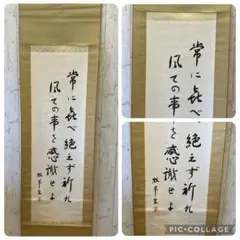 常に喜べ、絶えず祈れ
凡ての事を感謝せよ
常に喜べ、
凡ての事
絶えず祈れ
を感謝せよ
PIC•COLLAGE